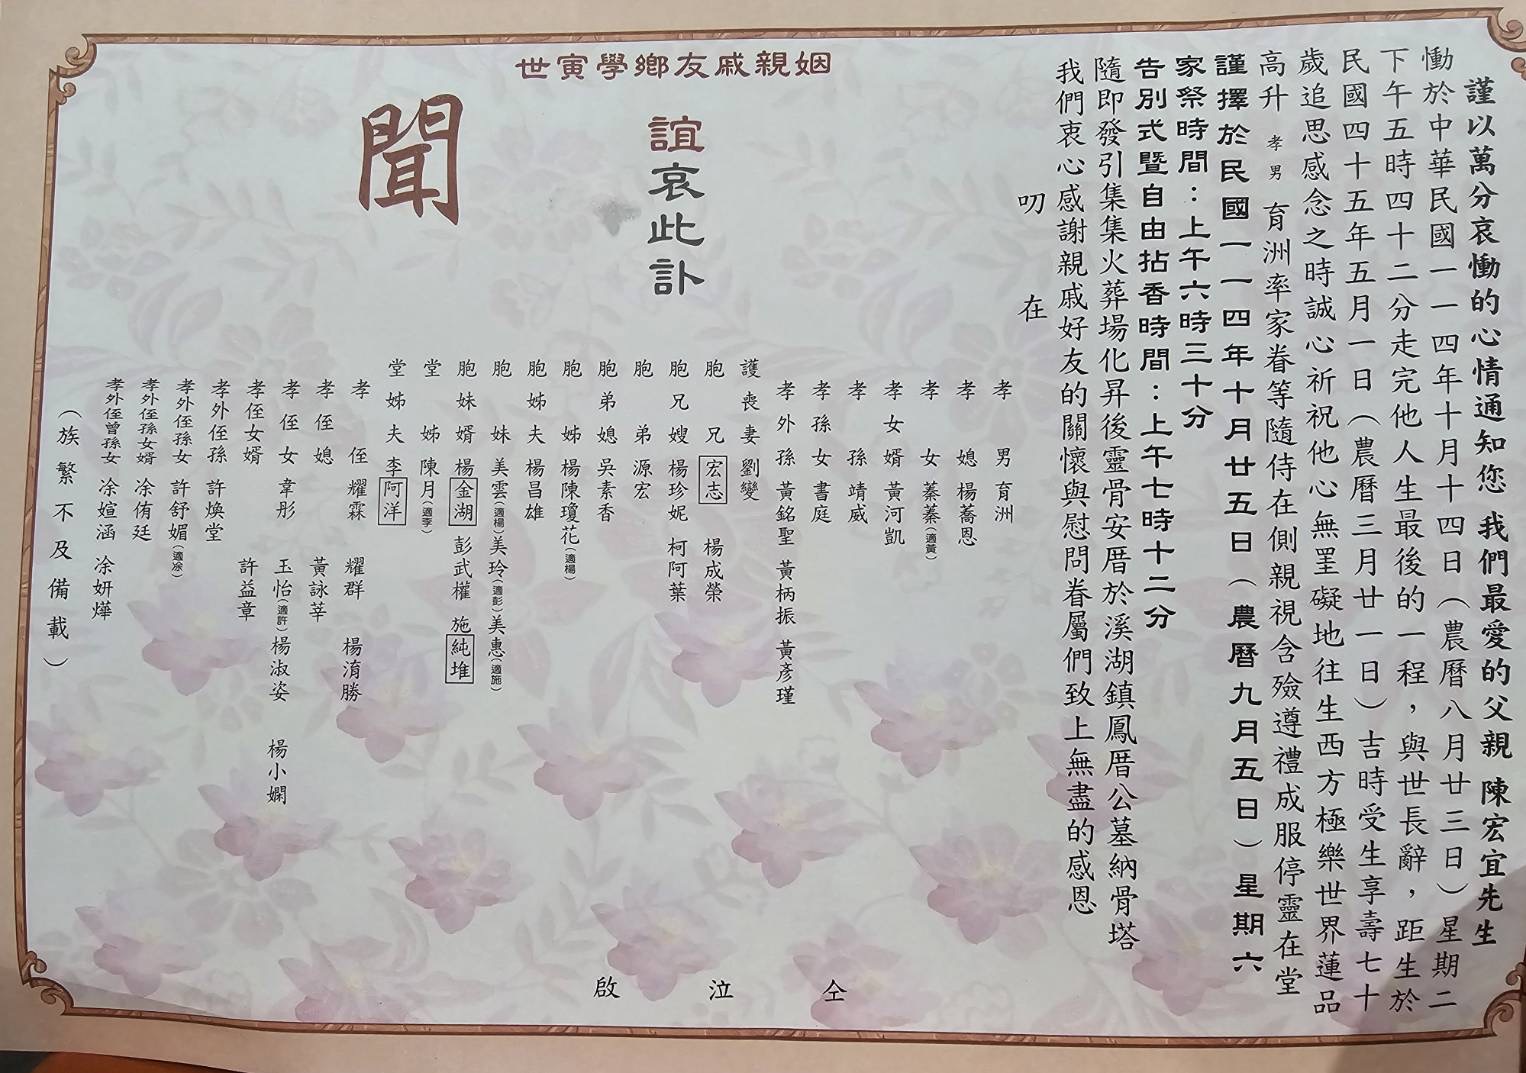 謹以萬分哀慟的心情通知您 我們最愛的父親 陳宏宜先生
慟於中華民國一一四年十月十四日（農曆八月廿三日）星期二
下午五時四十二分走完他人生最後的一程，與世長辭，距生於
民國四十五年五月一日（農曆三月廿一日）吉時受生享壽七十
歲追思感念之時誠心祈祝他心無罣礙地往生西方極樂世界蓮品
高升 孝男 育洲率家眷等隨侍在側親視含殮遵禮成服停靈在堂
謹擇於民國一一四年十月廿五日（農曆九月五日）星期六
家祭時間：上午六時三十分
告別式暨自由拈香時間：上午七時十二分
隨即發引集集火葬場化昇後靈骨安厝於溪湖鎮鳳厝公墓納骨塔
我們衷心感謝親戚好友的關懷與慰問眷屬們致上無盡的感恩
叨 在
姻親戚友鄉學寅世
誼哀此訃
聞
孝男 育洲
孝媳 楊蕎恩
孝女 蓁蓁（適黃）
孝女婿 黃河凱
孝孫 靖威
孝孫女 書庭
孝外孫 黃銘聖 黃柄振 黃彥瑾
護喪妻 劉孌
胞兄 宏志 楊成榮
胞兄嫂 楊珍妮 柯阿葉
胞弟 源宏
胞弟媳 吳素香
胞姊 楊陳瓊花（適楊）
胞姊夫 楊昌雄
胞妹 美雲（適楊）美玲（適彭）美惠（適施）
胞妹婿 楊金湖 彭武權 施純堆
堂姊 陳月（適李）
堂姊夫 李阿洋
孝侄 耀霖 耀群 楊淯勝
孝侄媳 黃詠莘
孝侄女 韋彤 玉怡（適許）楊淑姿 楊小嫻
孝侄女婿 許益章
孝外侄孫 許煥堂
孝外侄孫女 許舒媚（適凃）
孝外侄孫女婿 凃侑廷
孝外侄曾孫女 凃媗涵 凃妍燁
（族繁不及備載）
仝 泣 啟